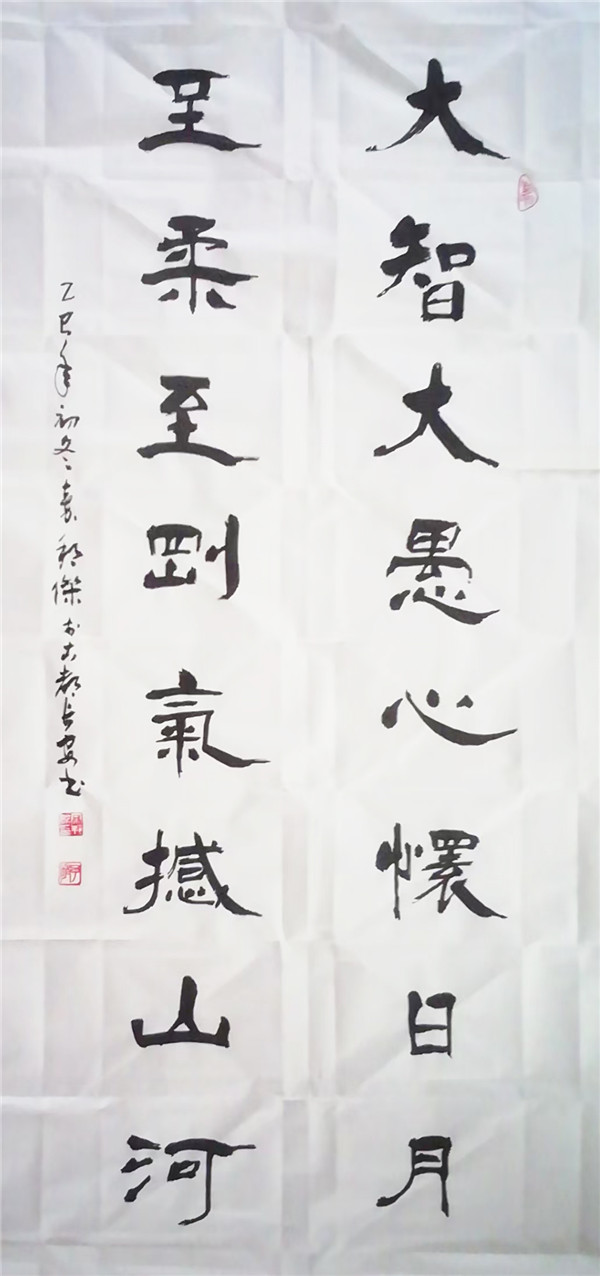 大智大愚心懷日月
至柔至剛氣撼山河
乙巳年初冬袁傑於古都长安书